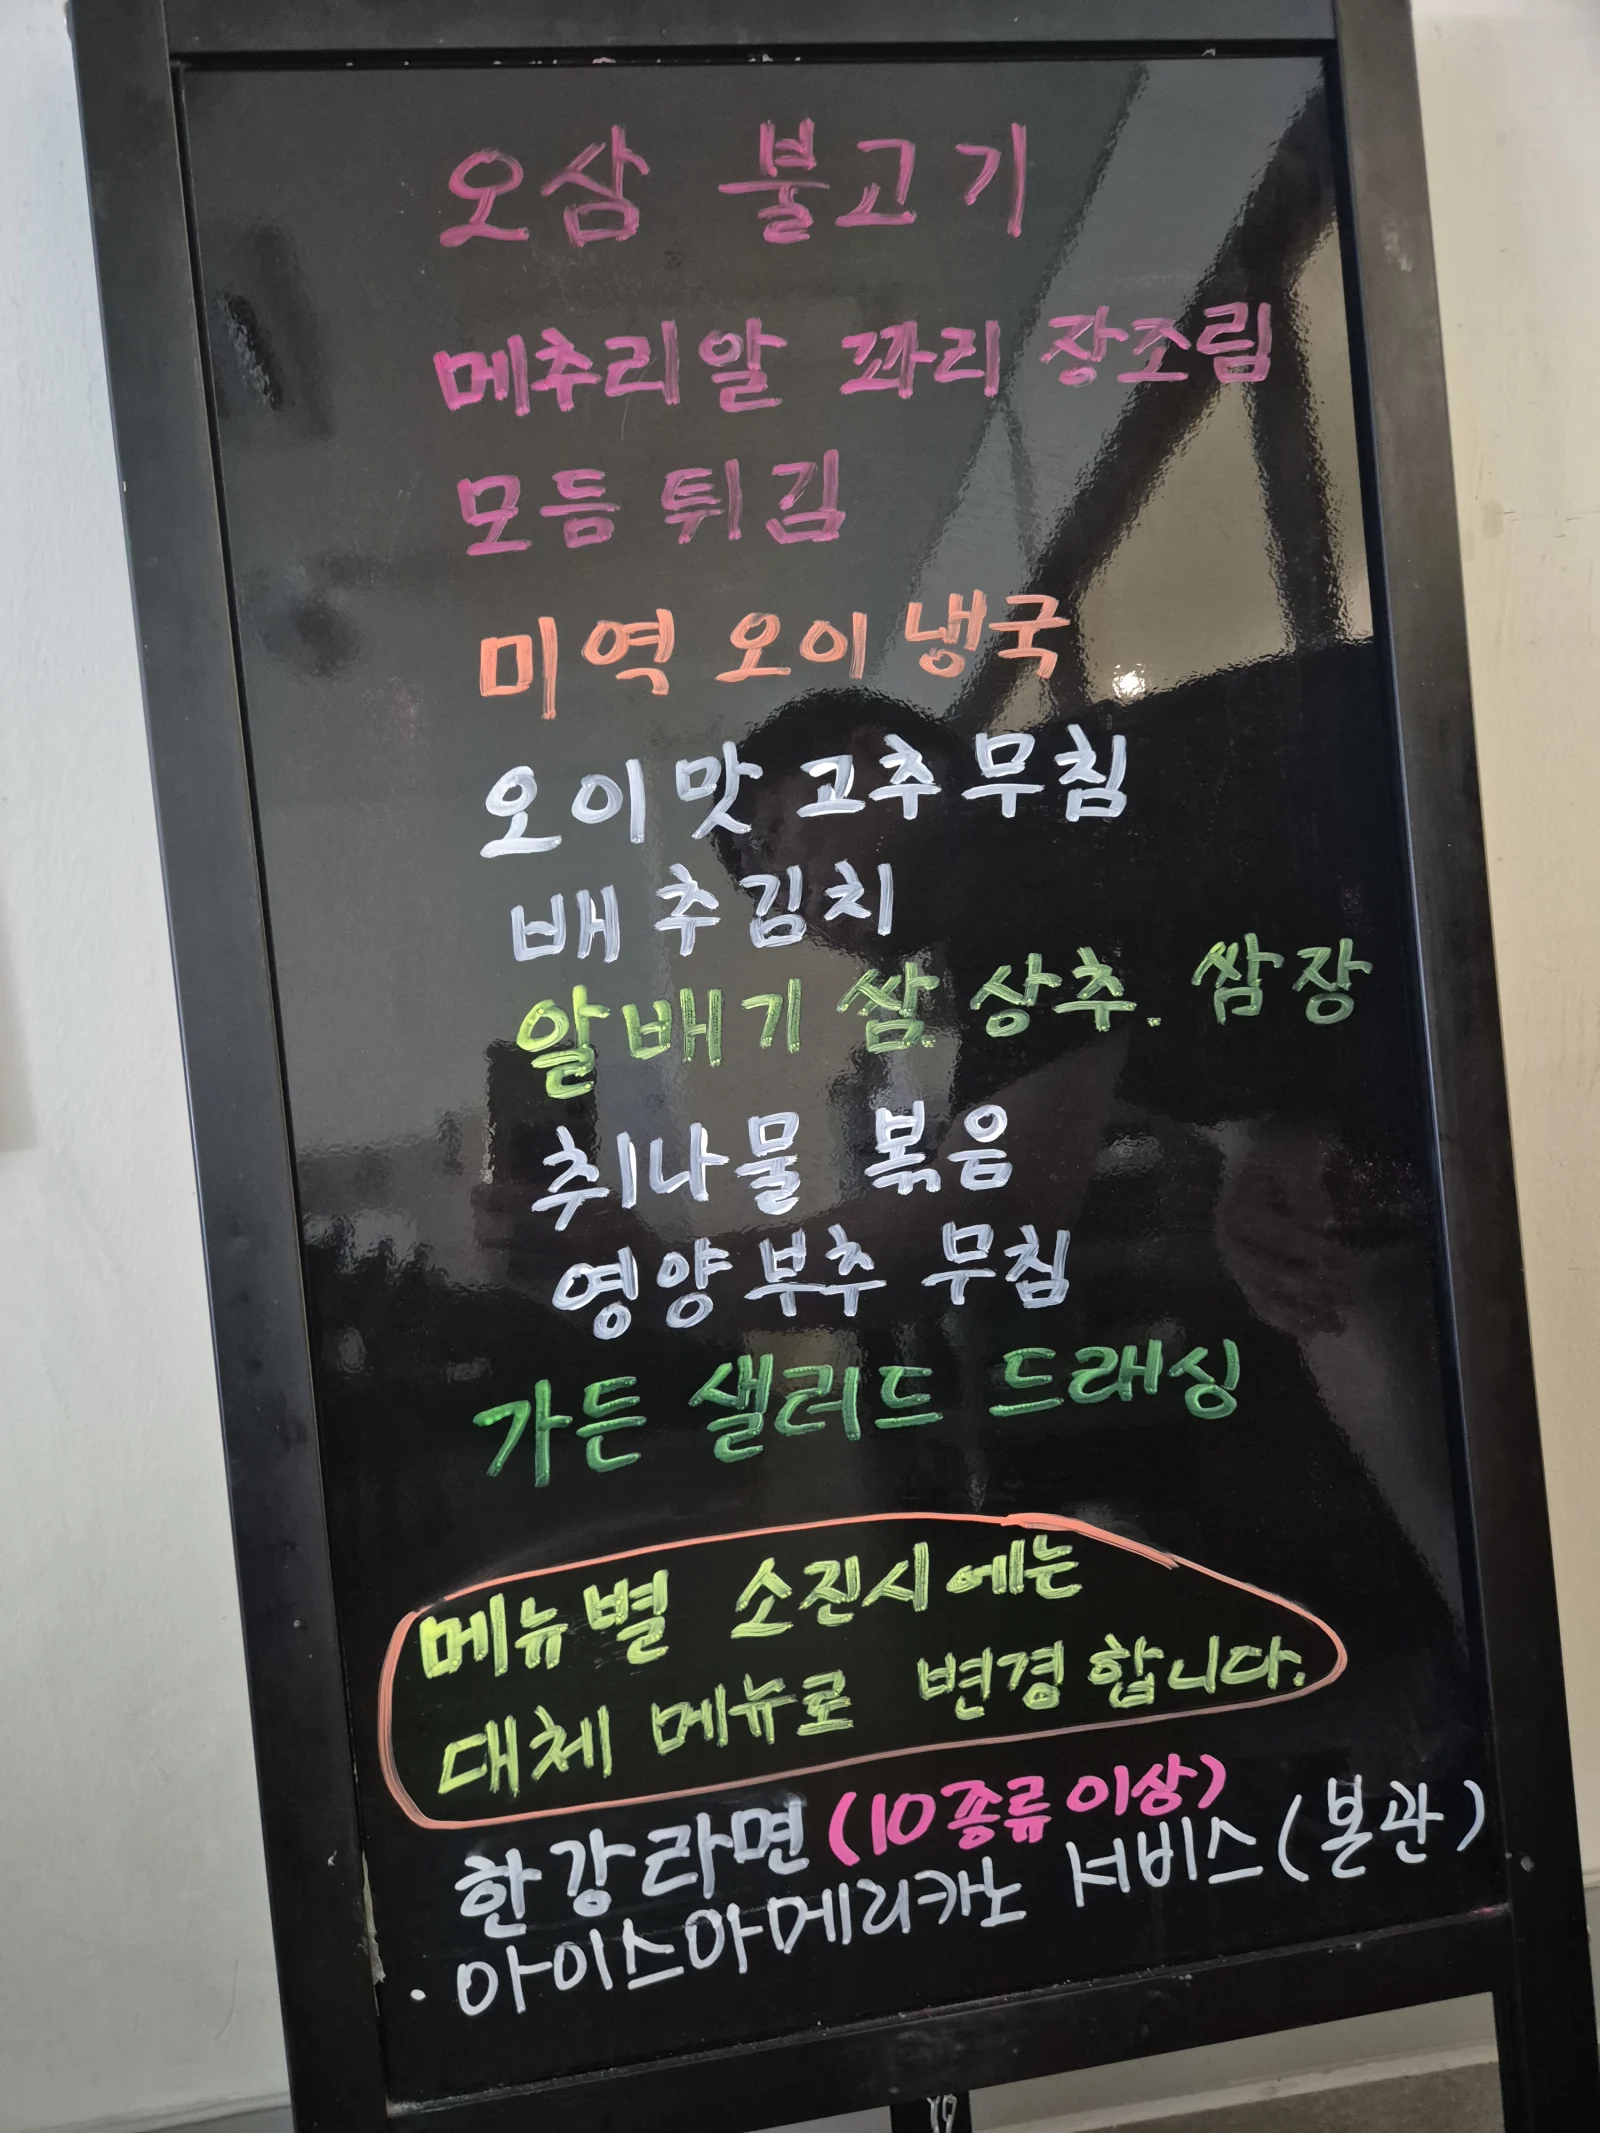 오삼 불고기
메추리알 꽈리 장조림
모듬 튀김
미역 오이 냉국
오이맛 고추 무침
배추김치
알배기 쌈 상추. 쌈장
취나물 볶음
영양 부추 무침
가든 샐러드 드래싱
메뉴별 소진시에는
대체 메뉴로 변경합니다.
한강라면 (10종류 이상)
· 아이스아메리카노 서비스(본관)